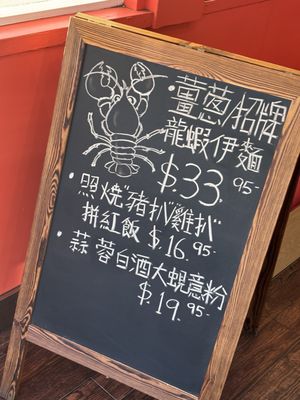 · 薑蔥招牌
龍蝦伊麵
$.33.95-
· 照燒"豬扒""雞扒"
拼紅飯 $.16.95-
· 蒜蓉白酒大蜆意粉
$.19.95-